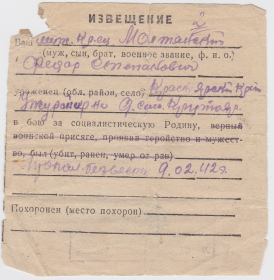 ИЗВЕЩЕНИЕ
Ваш
(муж, сын, брат, военное звание, ф. и. о.)
Федор Степанович
уроженец (обл. район, село) Красноярский край
в бою за социалистическую Родину, верный
воинской присяге, проявив геройство и мужест-
во, был (убит, ранен, умер от ран)
Пропал безвести 9.02.42г.
Похоронен (место похорон)